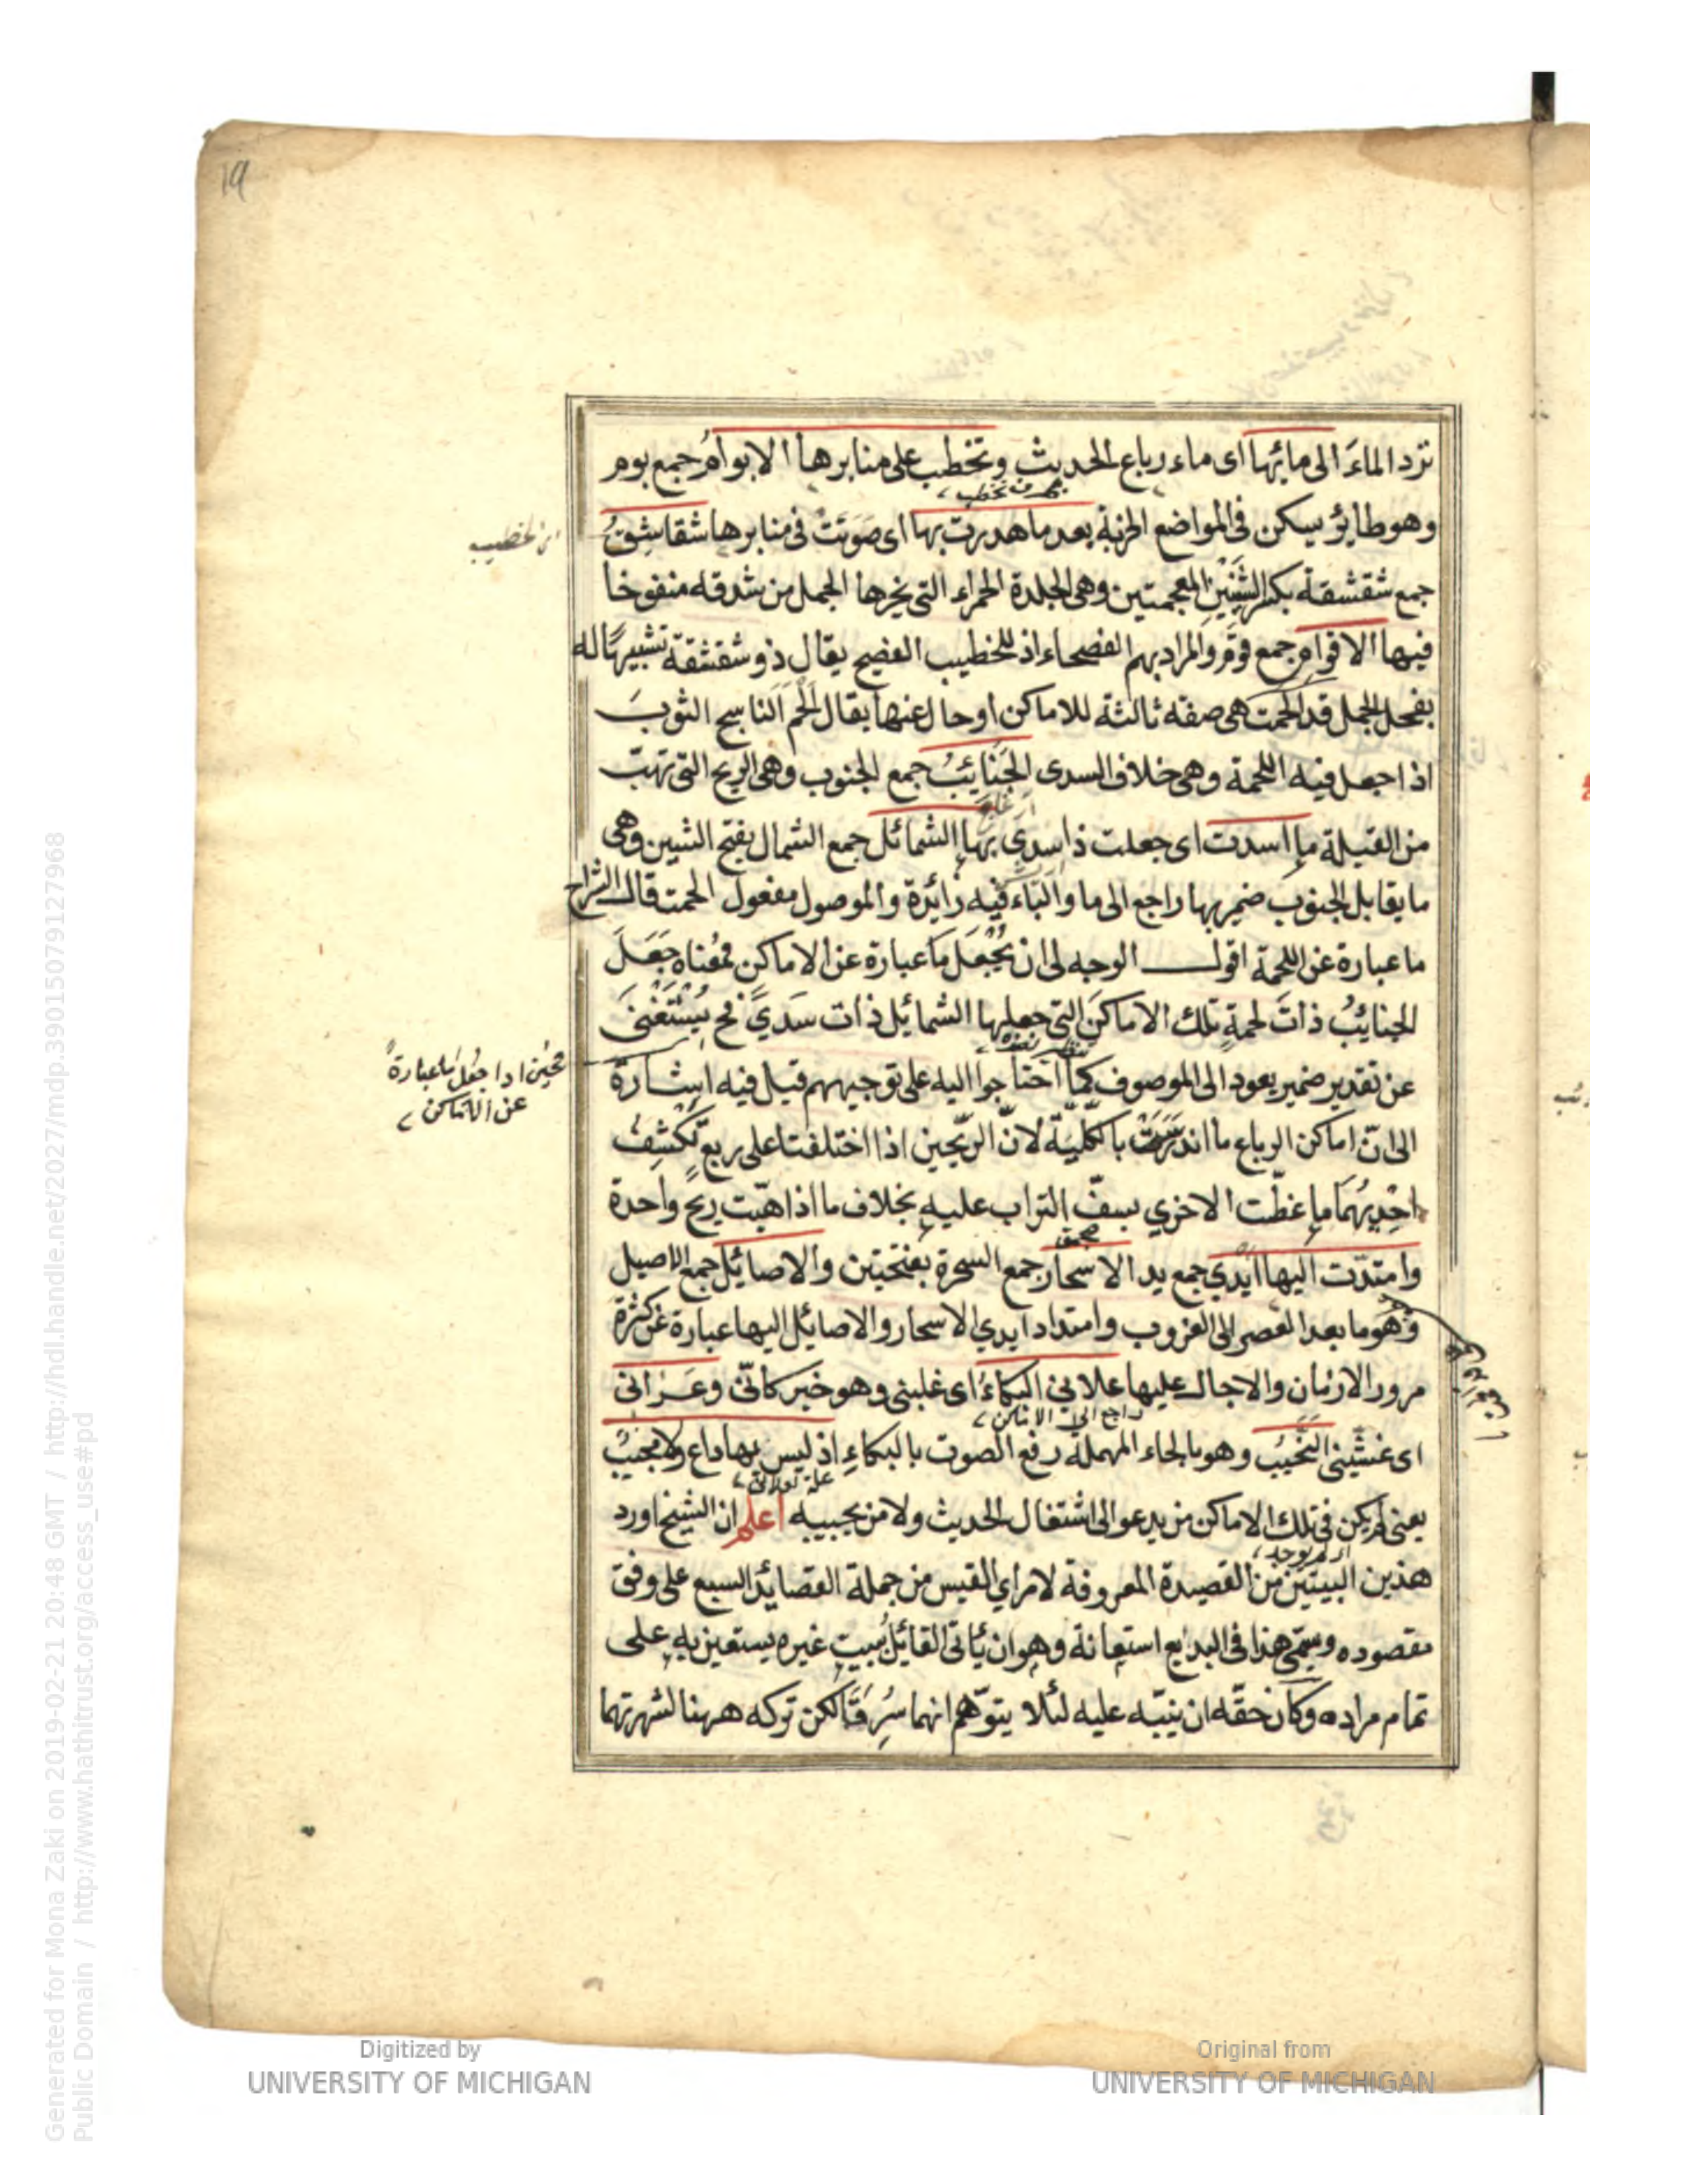 19
ترد الماءَ الى مائها اى ماء رباع الحديث وتخطب على منابرها الابوامُ جمع بوم
وهو طايرٌ يسكن فى المواضع الخربة بعد ما هدرت بها اى صَوَّتَتْ فى منابرها شقاشقُ
جمع شقشقة بكسر الشينَيْنِ المعجمتين وهى الجلدة الحمراء التى يخرجها الجمل من شدقه منفوخا
فيها الاقوام جمع قوم والمراد بهم الفصحاء اذ للخطيب الفصيح يقال ذو شقشقة تشبيهًا له
بفحل الجمل قد الحمت هى صفة ثالثة للاماكن او حال عنها يقال اَلْحَم الناسج الثوبَ
اذا جعل فيه اللحمة وهى خلاف السدى الجَنَايئبُ جمع الجنوب وهى الريح التى تهبّ
من القبلة ما اسدت اى جعلت ذا سدىً بها الشمائل جمع الشمال بفتح الشين وهى
ما يقابل الجنوب ضمير بها راجع الى ما والبَاء فيه زائدة والموصول مفعول الحمت قال الشراح
ما عبارة عن اللحمة اقول الوجه لى ان يُجْعَل ما عبارة عن الاماكن فمعناه جَعَلَ
الجنايبُ ذاتَ لحمةٍ تلك الاماكنَ التى جعلها الشمائل ذات سَدىً فح يُسْتَغْنَى
عن تقدير ضمير يعود الى الموصوف كما احتاجوا اليه على توجيههم قيل فيه اشارة
الى انّ اماكن الرباع ما اندرست بالكلّيّة لانّ الرّيحين اذا اختلفتا على ربع تكْشِفُ
احديهُمَا ما غطّت الاخرى بسفّ التراب عليه بخلاف ما اذا هبّت ريحٌ واحدة
وامتدّت اليها ايدي جمع يد الاسحار جمع السحرة بفتحتين والاصائل جمع الاصيل
وهو ما بعد العصر الى الغروب وامتداد ايدي الاسحار والاصايل اليها عبارة عن كثرة
مرور الازمان والاجال عليها علانى البكاءُ اى غلبنى وهو خبر كانّى وعَرَانى
اى غشّينى النَّحيبُ وهو بالحاء المهملة رفع الصوت بالبكاءِ اذ ليس بها داع ولا مجيبٌ
يعنى لم يكن فى تلك الاماكن من يدعو الى اشتغال الحديث ولا من يجيبه اعلم ان الشيخ اورد
هذين البيتين من القصيدة المعروفة لامراي القيس من جملة القصايد السبع على وفق
مقصوده ويسمّى هذا فى البديع استعانة وهو ان يأتى القائل ببيت غيره يستعين به على
تمام مراده وكان حقّه ان ينبّه عليه لئلا يتوّهم انهما سُرِقَتَا لكن تركه ههنا لشهرتهما
فحين اذا جُعل ما عبارةً
عن الاماكن
راجع الى الاماكن
Digitized by
UNIVERSITY OF MICHIGAN
Original from
UNIVERSITY OF MICHIGAN
Generated for Mona Zaki on 2019-02-21 20:48 GMT / http://hdl.handle.net/2027/mdp.39015079127968
Public Domain / http://www.hathitrust.org/access_use#pd